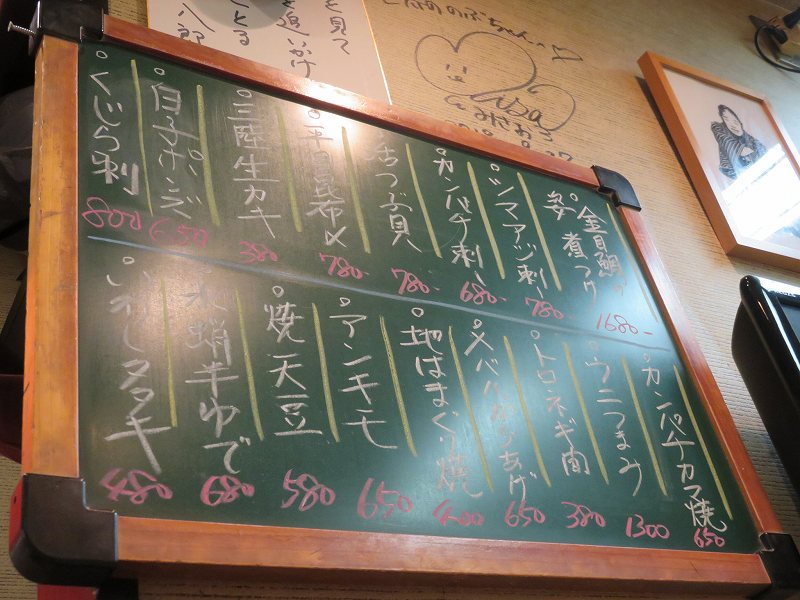 を見て
を追いかけ
とる
八郎
金目鯛の
姿煮つけ
1680-
シマアジ刺し
780
カンパチ刺し
680-
活つぶ貝
780-
平目昆布〆
780-
三陸生カキ
380
白子ポンズ
650
くじら刺
800
カンパチカマ焼
650
ウニつまみ
1300
トロネギ間
380
メバルからあげ
650
地はまぐり焼
400
アンキモ
650
焼天豆
580
水蛸半ゆで
680
いわしタタキ
480